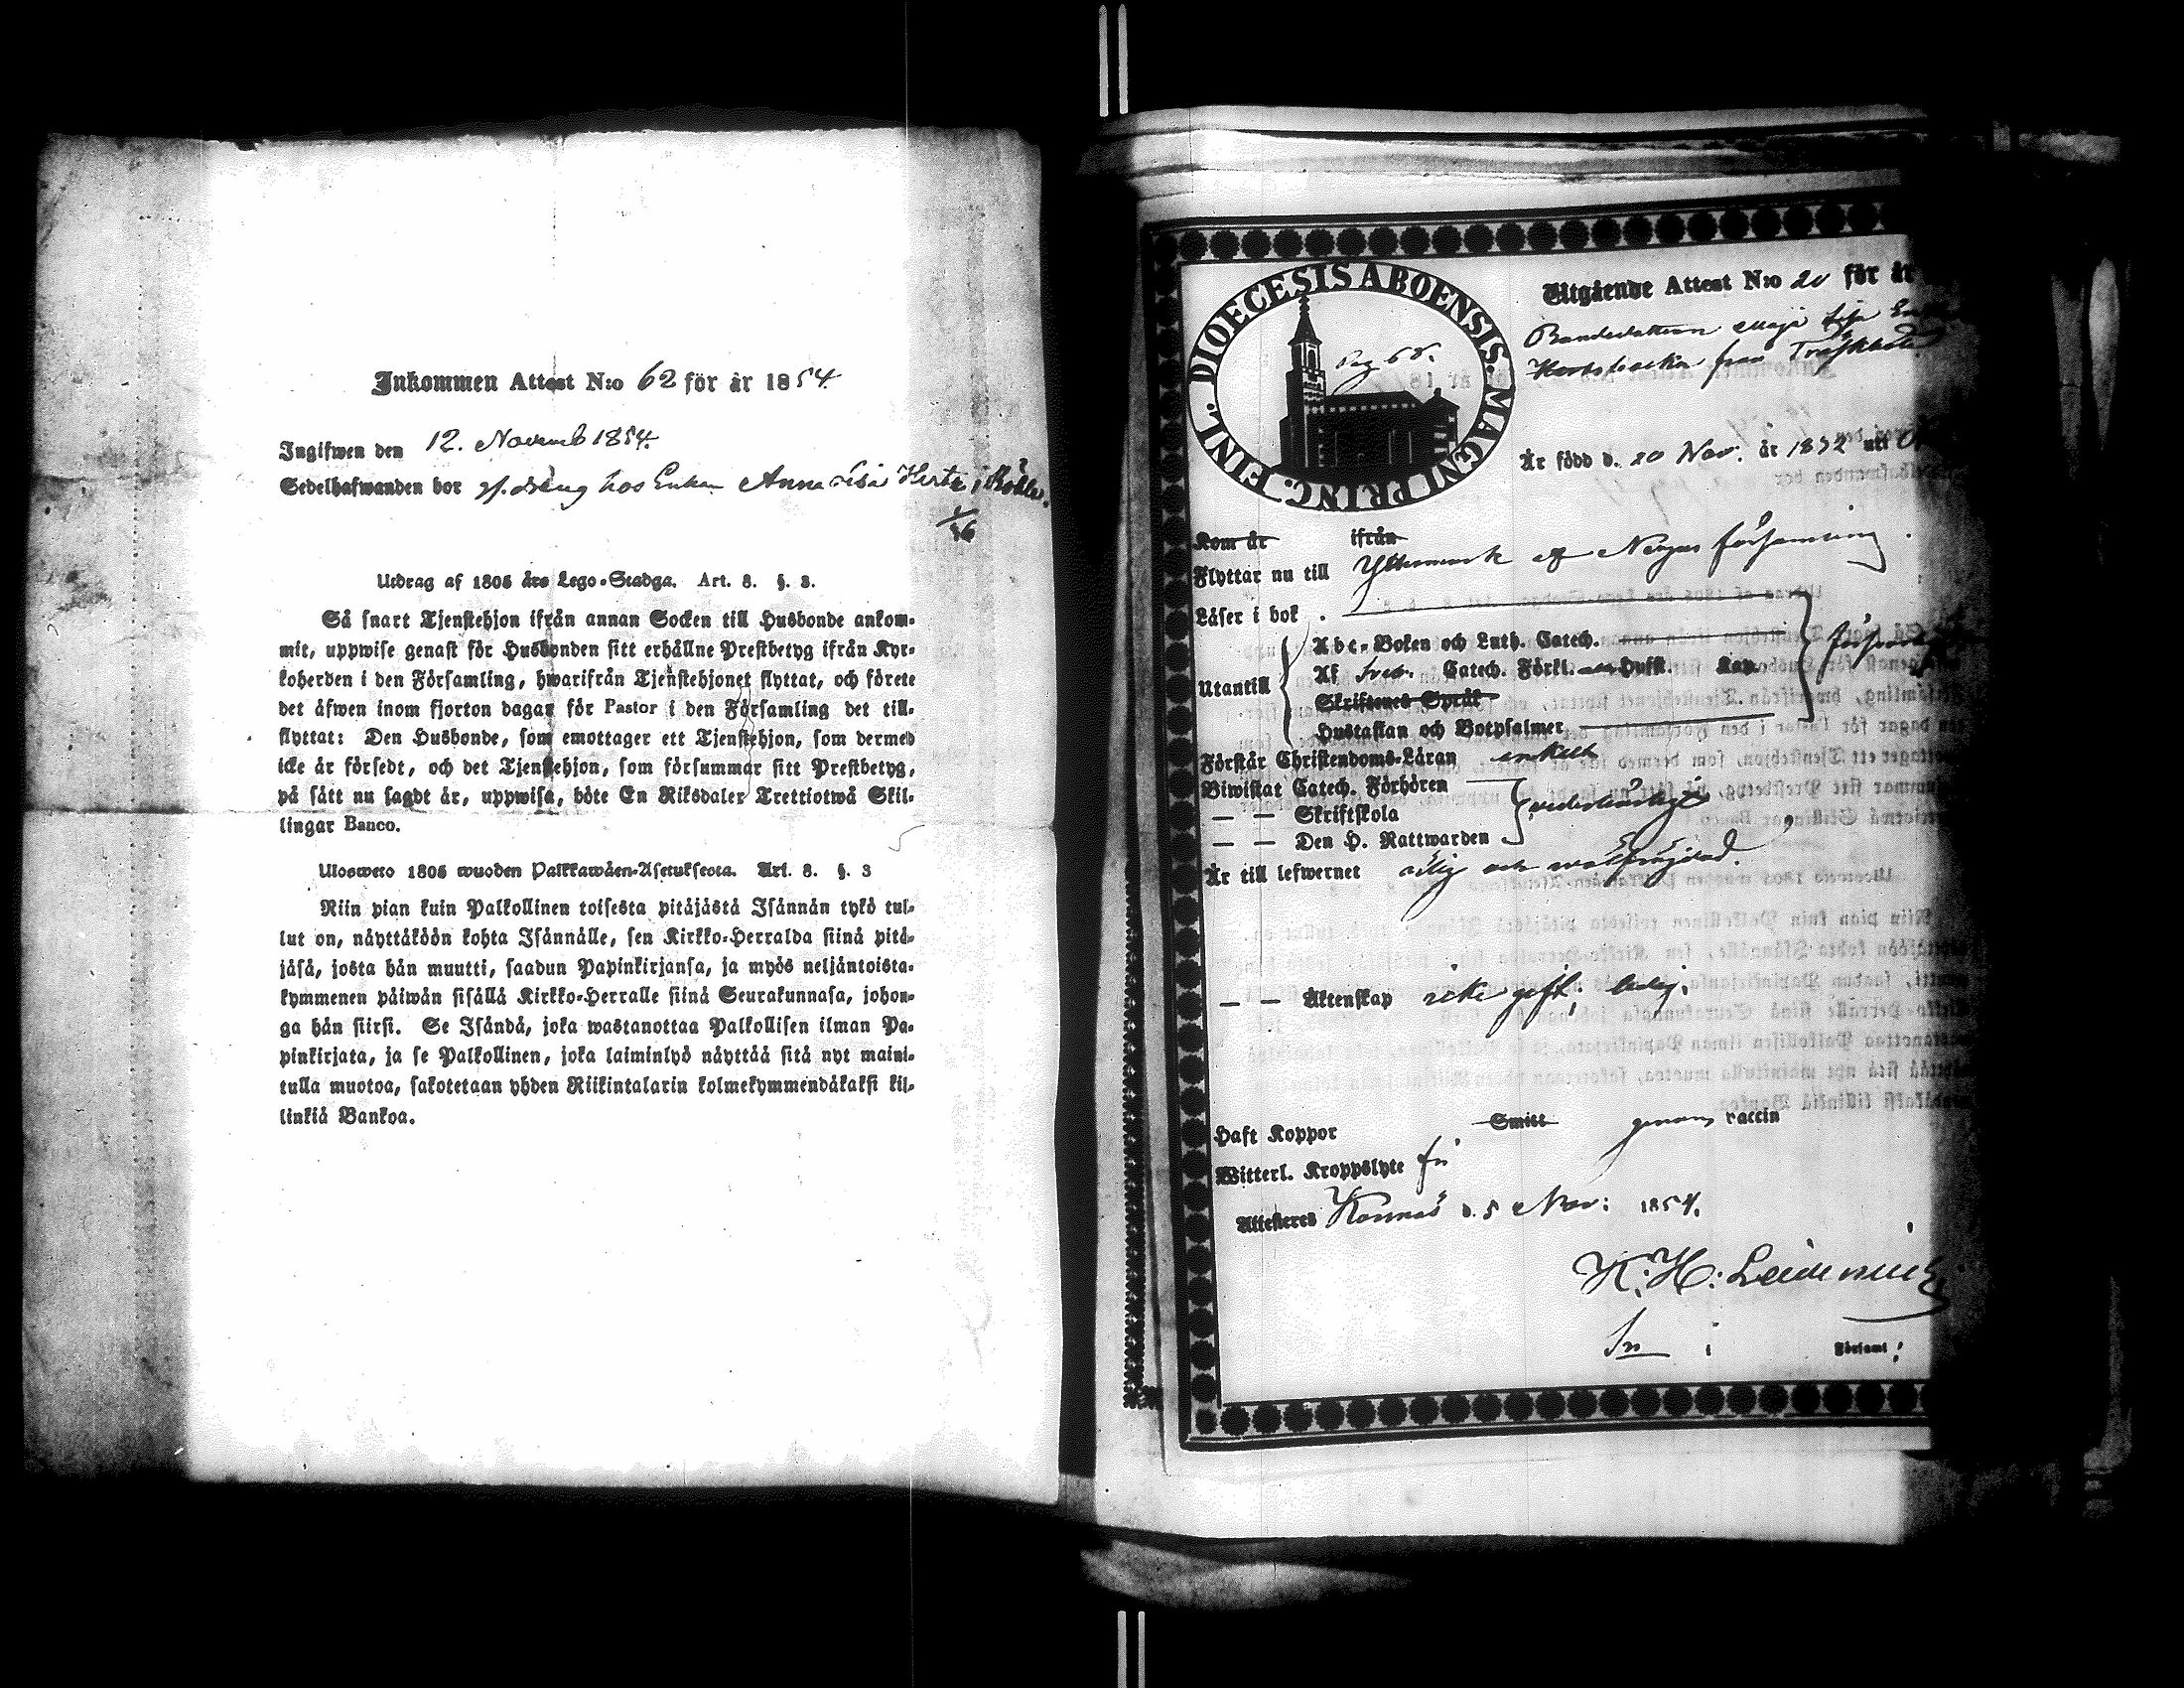 Inkommen Attest N:o 62 för år 1854
Ingifwen den 12. Novemb 1854.
Sedelhafwanden bor hos Enkan Anna Lisa
Utdrag af 1805 års Lego-Stadga. Art. 8. §. 3.
Så snart Tjenstehjon ifrån annan Socken till Husbonde ankom-
mit, uppwise genast för Husbonden sitt erhållne Prestbetyg ifrån Kyr-
koherden i den Församling, hwarifrån Tjenstehjonet flyttat, och förete
det äfwen inom fjorton dagar för Pastor i den Församling det till-
flyttat: Den Husbonde, som emottager ett Tjenstehjon, som dermed
icke är försedt, och det Tjenstehjon, som försummar sitt Prestbetyg,
på sätt nu sagdt är, uppwisa, böte En Riksdaler Trettiotwå Skil-
lingar Banco.
Ulosweto 1805 wuoden Palkkawäen-Asetuksesta. Art. 8. §. 3
Niin pian kuin Palkollinen toisesta pitäjästä Isännän tykö tul-
lut on, näyttäköön kohta Isännälle, sen Kirkko-Herralda siinä pitä-
jäsä, josta hän muutti, saadun Papinkirjansa, ja myös neljäntoista-
kymmenen päiwän sisällä Kirkko-Herralle siinä Seurakunnasa, johon-
ga hän siirsi. Se Isändä, joka wastanottaa Palkollisen ilman Pa-
pinkirjata, ja se Palkollinen, joka laiminlyö näyttää sitä nyt maini-
tulla muotoa, sakotetaan yhden Riikintalarin kolmekymmendäkaksi kil-
linkiä Bankoa.
DIOECESIS ABOENSIS. MAGNI PRINC. FINL.
Pag 68.
Utgående Attest N:o 20 för år
Bondedottren Maja Lisa
från Träskböle
Är född d. 20 Nov. år 1832 uti
Kom år ifrån
Flyttar nu till Yttermark af Nerpes församling.
Läser i bok .
Utantill
Abc-Boken och Luth. Catech.
Af Sveb. Catech. Förkl. Husst. Kap.
Skriftenes Språk
Hustaflan och Botpsalmer
Förstår Christendoms-Läran enkelt
Biwistat Catech. Förhören
— — Skriftskola
— — Den H. Nattwarden
Är till lefwernet ärlig och wälfrejdad.
— — Äktenskap icke gift; ledig.
Haft Koppor Smitt genom vaccin
Witterl. Kroppslyte fri
Attesteras Korsnäs d. 5 Nov: 1854.
K: H:
i Församl: